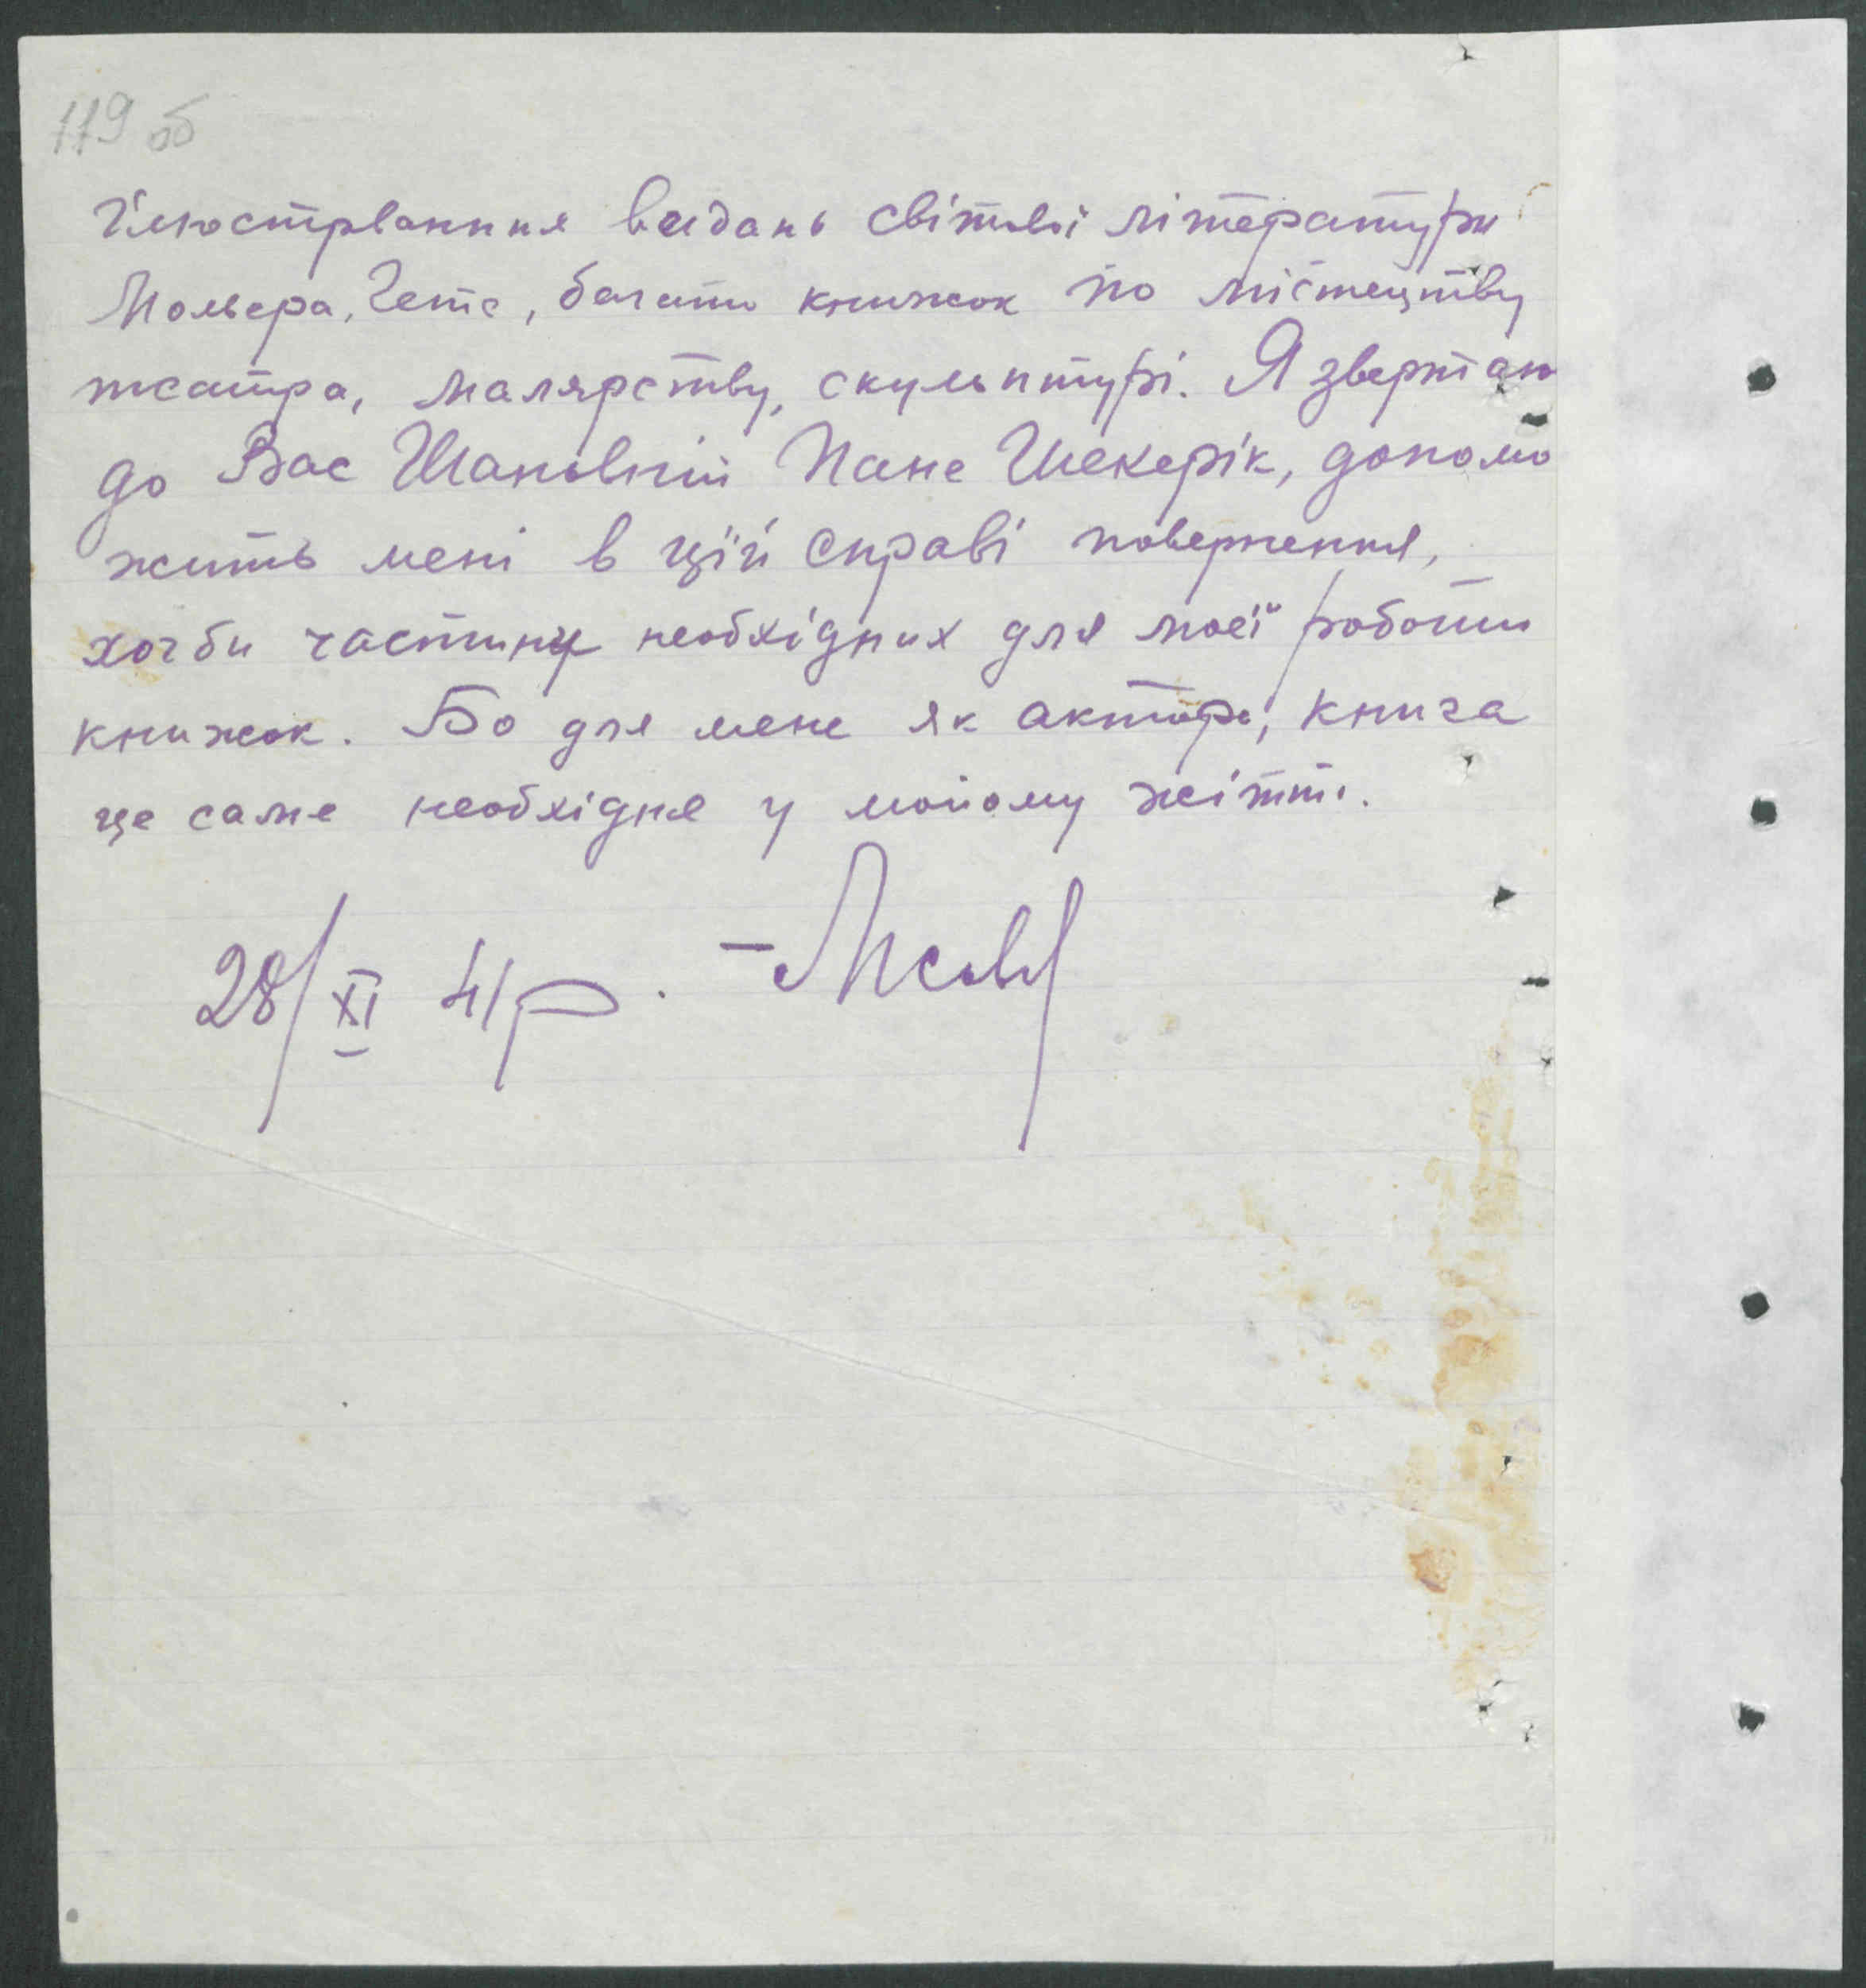 119 об
ілюстрванння видань світової літератури
Мольера, Гете, багато книжок по містецтву
театра, малярству, скульптурі. Я звертаю
до Вас Шановний Пане Шекерік, допомо
жить мені в цій справі повернення,
хочби частину необхідних для моєї роботи
книжок. Бо для мене як актора, книга
це саме необхідне у мойому жітті.
28/XI 41 р.